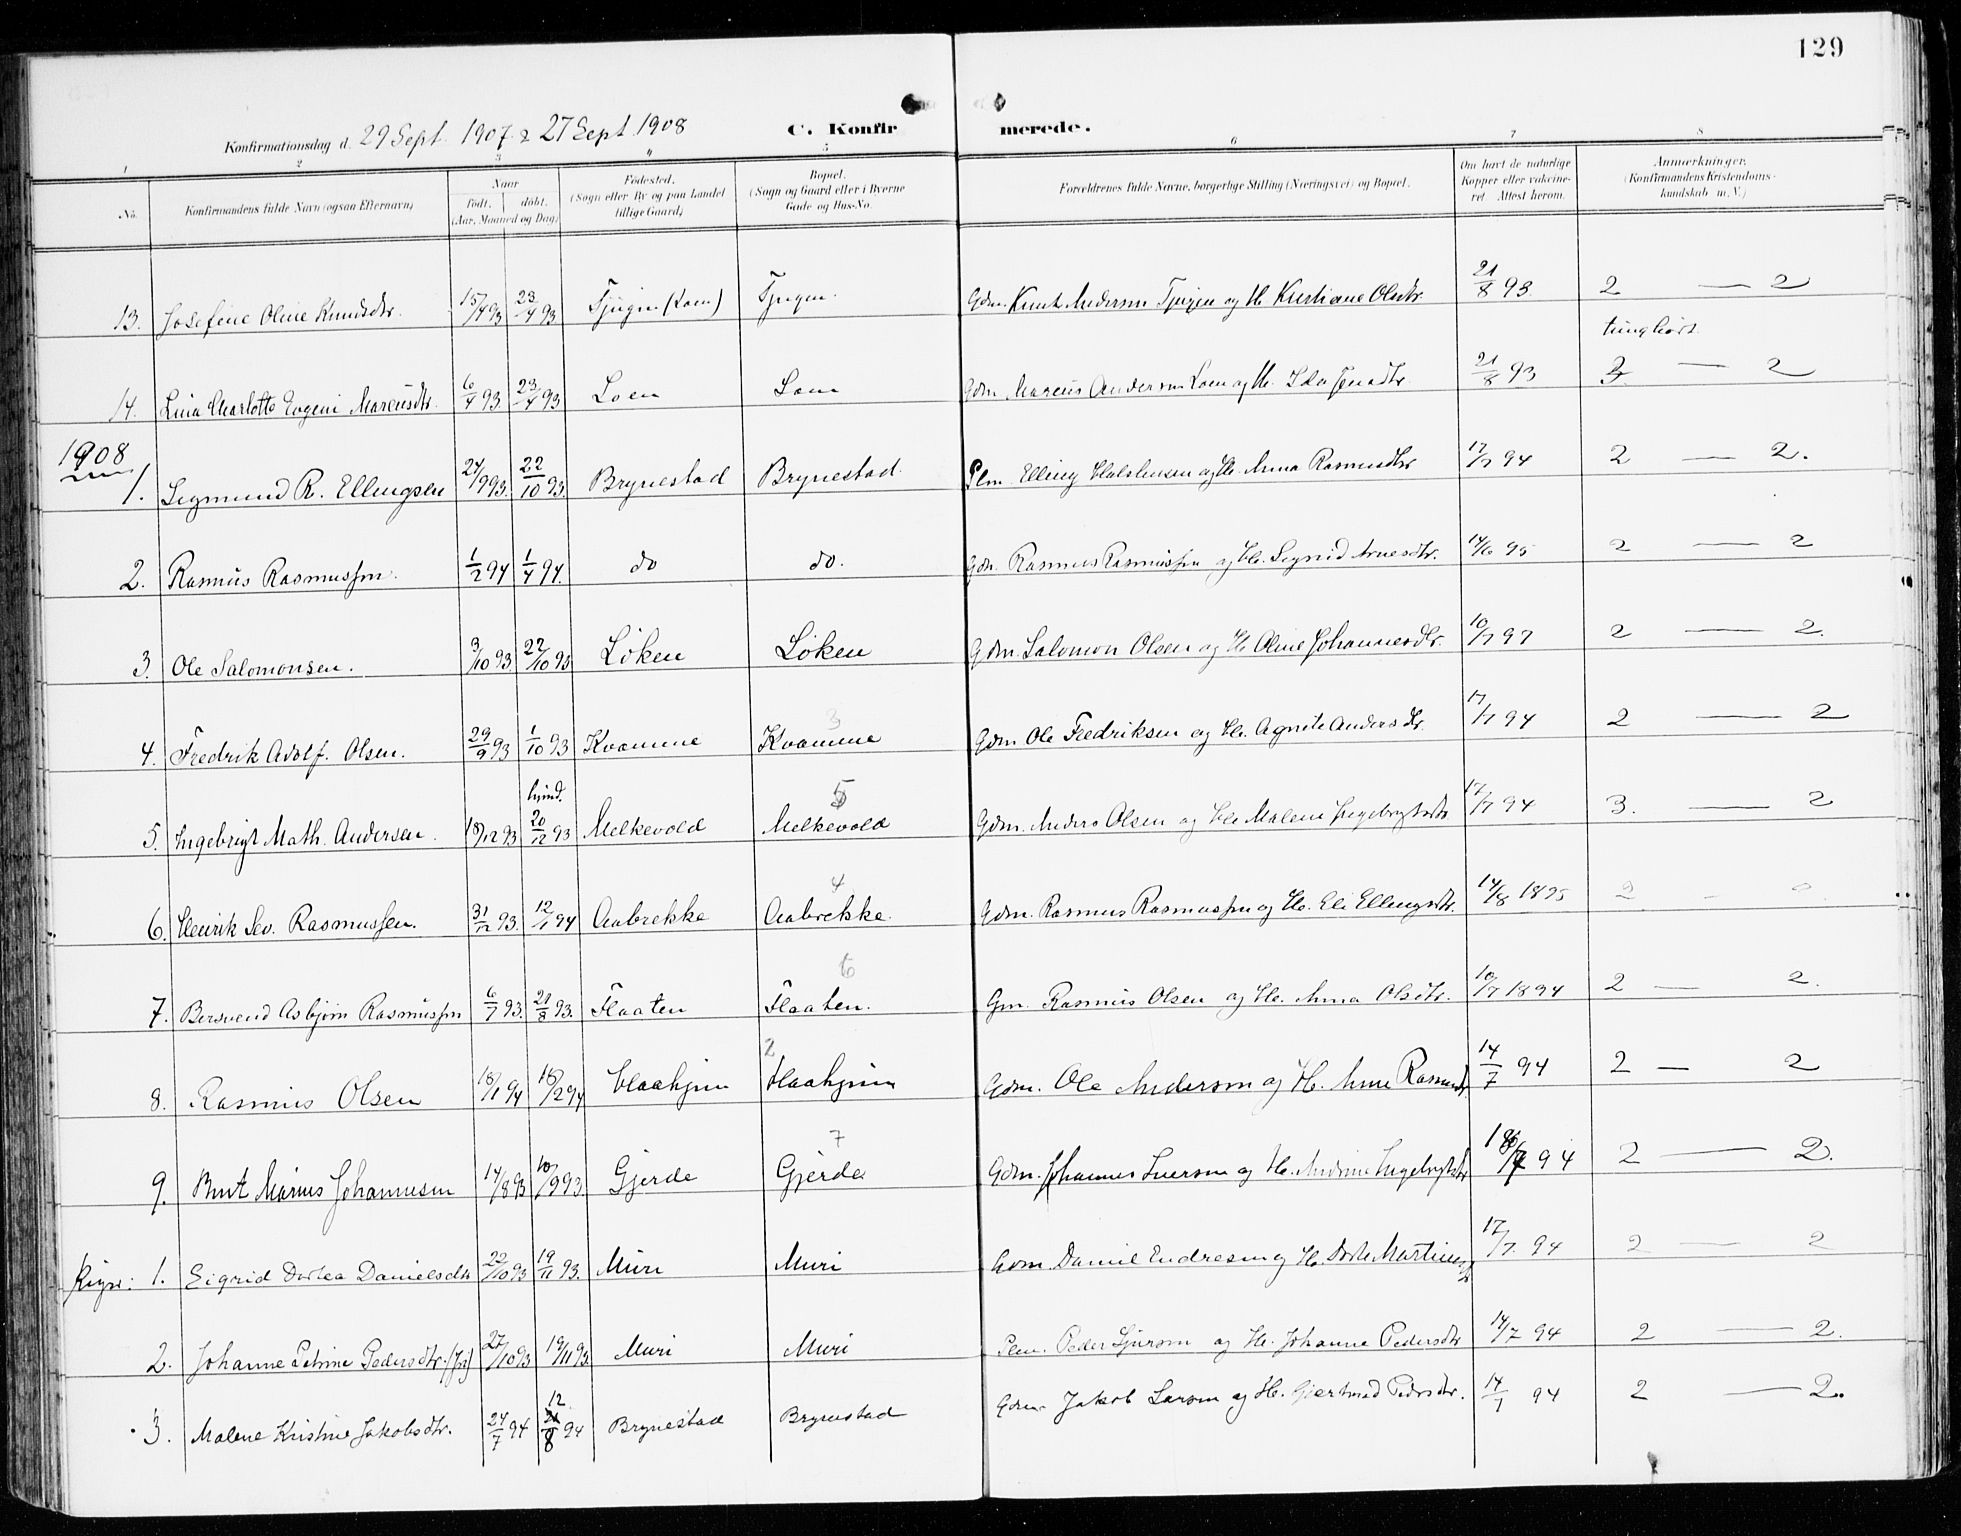 129
Konfirmationsdag d. 29 Sept. 1907 & 27 Sept 1908
C. Konfirmerede.
1 2 3 4 5 6 7 8
No. Konfirmandens fulde Navn (ogsaa Efternavn) Naar født. døbt. (Aar, Maaned og Dag) Fødested. (Sogn eller By og paa Landet tillige Gaard) Bopæl. (Sogn og Gaard eller i Byerne Gade og Hus-No. Forældrenes fulde Navne, borgerlige Stilling (Næringsvei) og Bopæl. Om havt de naturlige Kopper eller vakcineret. Attest herom. Anmærkninger. (Konfirmandens Kristendomskundskab m. V.)
13. Josefine Oline Knudsdtr. 15/4 93 23/4 93 Tjugen (Loen) Tjugen. Gdm. Knut Andersen Tjugen og H. Kristiane Olsdtr. 21/8 93 2 — 2
tunghørt
14. Lina Charlotte Eugeni Mareusdtr. 6/4 93 23/4 93 Loen Loen Gdm. Mareus Andersen Loen og H. Ida Jensdtr. 21/8 93 3 — 2
1908
1. Sigmund R. Ellingsen 24/9 93. 22/10 93 Brynestad Brynestad. Plm. Elling og H. Anna Rasmusdtr 17/7 94 2 — 2.
2. Rasmus Rasmussen. 1/2 94 1/4 94. do do. Gdm. Rasmus Rasmussen og H. Sigrid Arnesdtr. 14/6 95 2 — 2
3. Ole Salomonsen. 3/10 93 22/10 93 Løken Løken Gdm. Salomon Olsen og H. Oline Johannesdtr. 10/7 97 2 — 2.
3
4. Fredrik Adolf. Olsen. 29/9 93 1/10 93 Kvamme Kvamme Gdm Ole Fredriksen og H. Agnete Andersdtr. 17/7 94 2 — 2
hjmd. 5
5. Ingebrigt Math. Andersen. 18/12 93 20/12 93 Melkevold Melkevold Gdm. Anders Olsen og H. Malene Ingebrigtsdtr 17/7 94 3. — 2
4
6. Henrik Sev. Rasmussen. 31/12 93. 12/1 94 Aabrekke Aabrekke. Gdm. Rasmus Rasmussen og H. Eli Ellingsdtr. 14/8 1895 2 — 2
6
7. Bersvend Asbjørn Rasmussen 6/7 93. 21/8 93. Flaaten Flaaten. Gm. Rasmus Olsen og H. Anna Olsdtr. 10/7 1894 2 — 2.
2
8. Rasmus Olsen 18/1 94 18/2 94 Haahjem Haahjem Gdm. Ole Andersen og H. Anne Rasmusdtr 14/7 94 2 — 2
7
9. Bent Marius Johannesen 14/8 93 10/9 93. Gjerde Gjerde Gdm. Johannes Iversen og H. Andrine Ingebrigtsdtr 18/7 94 2 — 2.
Piger: 1. Sigrid Dortea Danielsdtr 22/10 93 19/11 93. Muri Muri Gdm. Daniel Endresen og H. Dorte Martinusdtr 17/7. 94 2 — 2
2. Johanne Petrine Pedersdtr. 27/10 93 19/11 93. Muri Muri Plm. Peder Sjursen og H. Johanne Pedersdtr 14/7 94 2 — 2.
3. Malene Kristine Jakobsdtr. 24/7 94 12/8 94 Brynestad Brynestad Gdm. Jakob Larsen og H. Gjertrud Pedersdtr. 14/7 94 2 — 2.